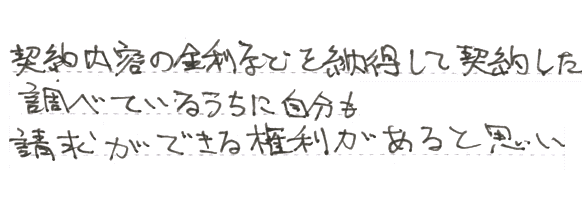 契約内容の金利などを納得して契約した
調べているうちに自分も
請求ができる権利があると思い